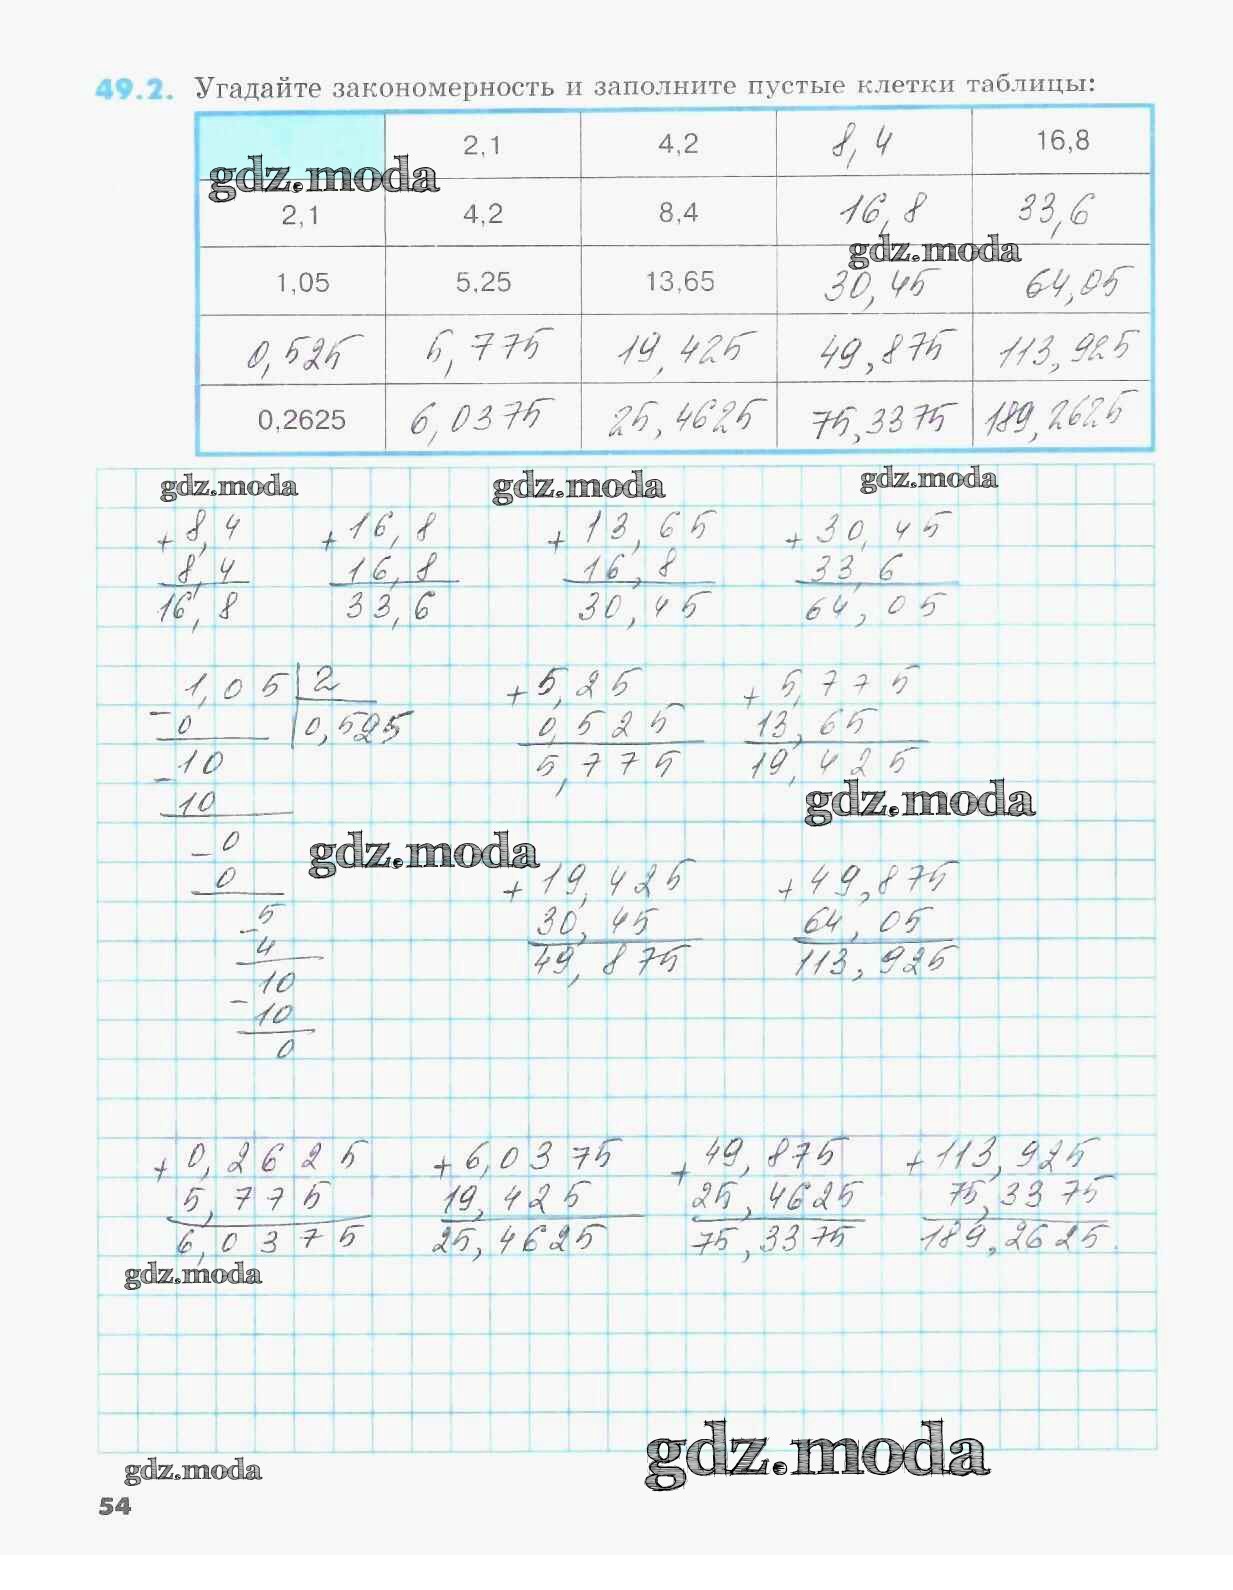 49.2. Угадайте закономерность и заполните пустые клетки таблицы:
2,1 4,2 8,4 16,8
gdz.moda
2,1 4,2 8,4 16,8 33,6
gdz.moda
1,05 5,25 13,65 30,45 64,05
0,525 5,775 19,425 49,875 113,925
0,2625 6,0375 25,4625 75,3375 189,2625
gdz.moda gdz.moda gdz.moda
+ 8,4 + 16,8 + 13,65 + 30,45
8,4 16,8 16,8 33,6
16,8 33,6 30,45 64,05
1,05 2 + 5,25 + 5,775
- 0 0,525 0,525 13,65
- 10 5,775 19,425
10 gdz.moda
- 0 gdz.moda
0 + 19,425 + 49,875
- 5 30,45 64,05
4 49,875 113,925
- 10
10
0
+ 0,2625 + 6,0375 + 49,875 + 113,925
5,775 19,425 25,4625 75,3375
6,0375 25,4625 75,3375 189,2625.
gdz.moda
gdz.moda
gdz.moda
54